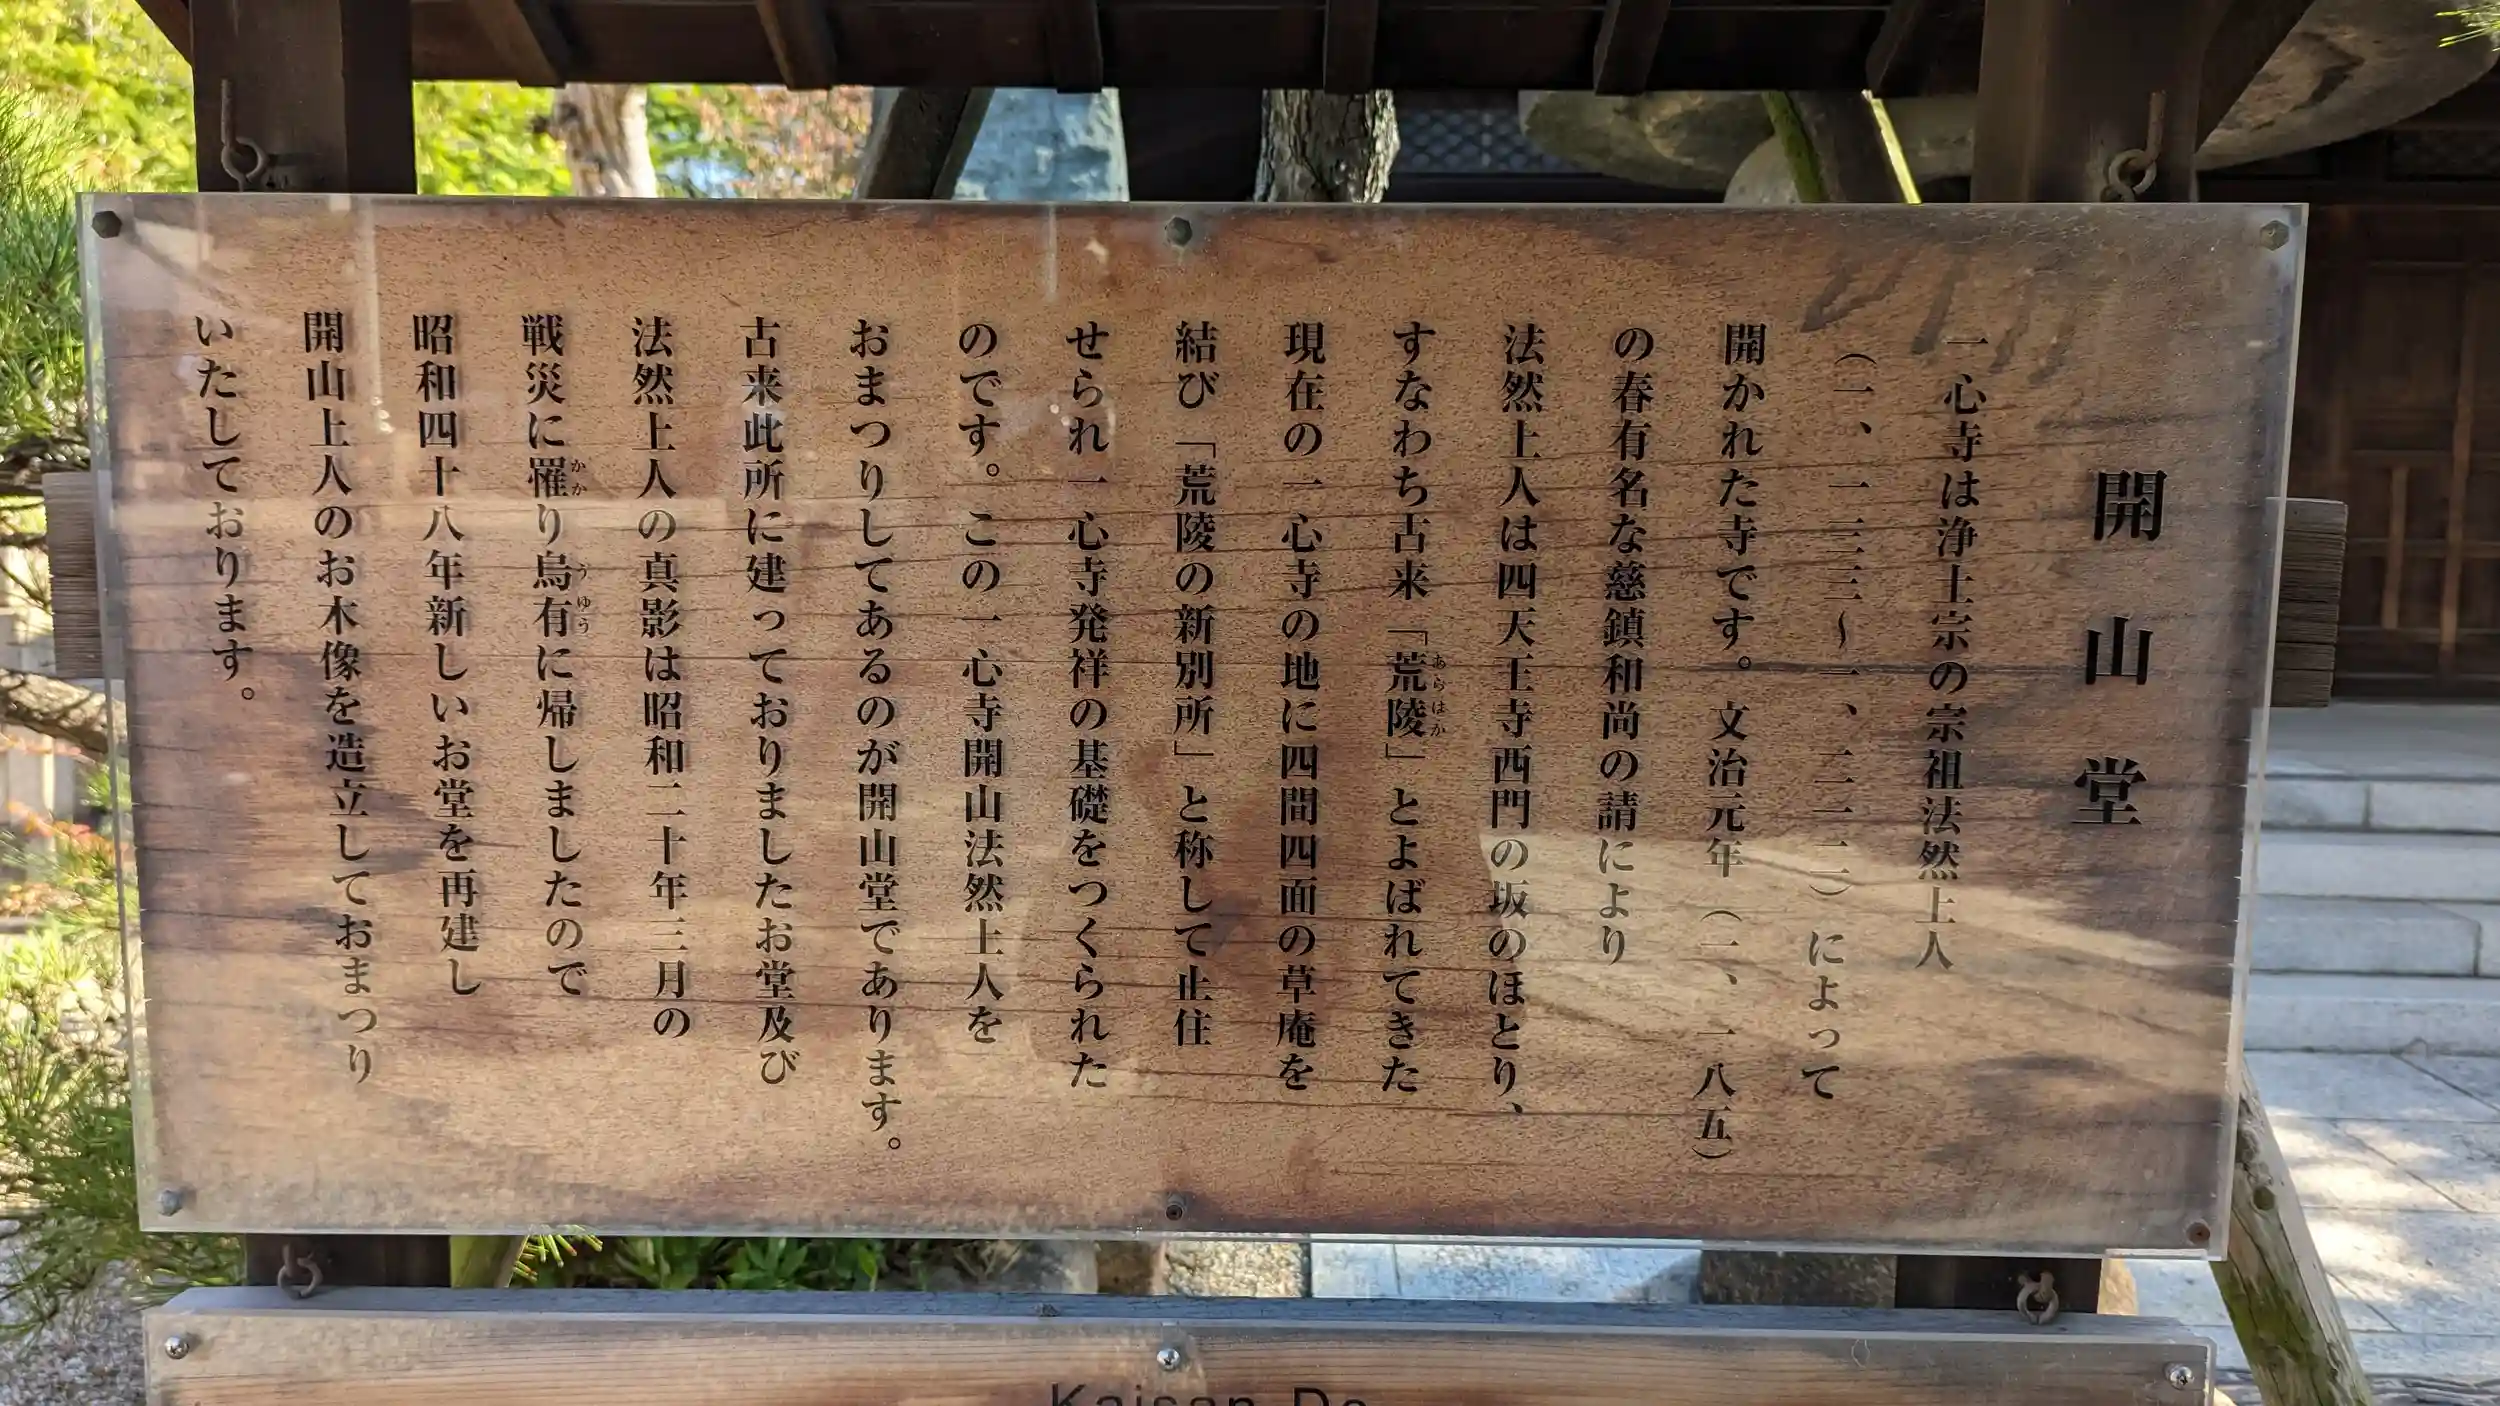 開山堂
一心寺は浄土宗の宗祖法然上人
（一、一三三～一、二一二）によって
開かれた寺です。文治元年（一、一八五）
の春有名な慈鎮和尚の請により
法然上人は四天王寺西門の坂のほとり、
すなわち古来「荒陵」とよばれてきた
あらはか
現在の一心寺の地に四間四面の草庵を
結び「荒陵の新別所」と称して止住
せられ一心寺発祥の基礎をつくられた
のです。この一心寺開山法然上人を
おまつりしてあるのが開山堂であります。
古来此所に建っておりましたお堂及び
法然上人の真影は昭和二十年三月の
戦災に罹り烏有に帰しましたので
かか うゆう
昭和四十八年新しいお堂を再建し
開山上人のお木像を造立しておまつり
いたしております。
Kaisan Do